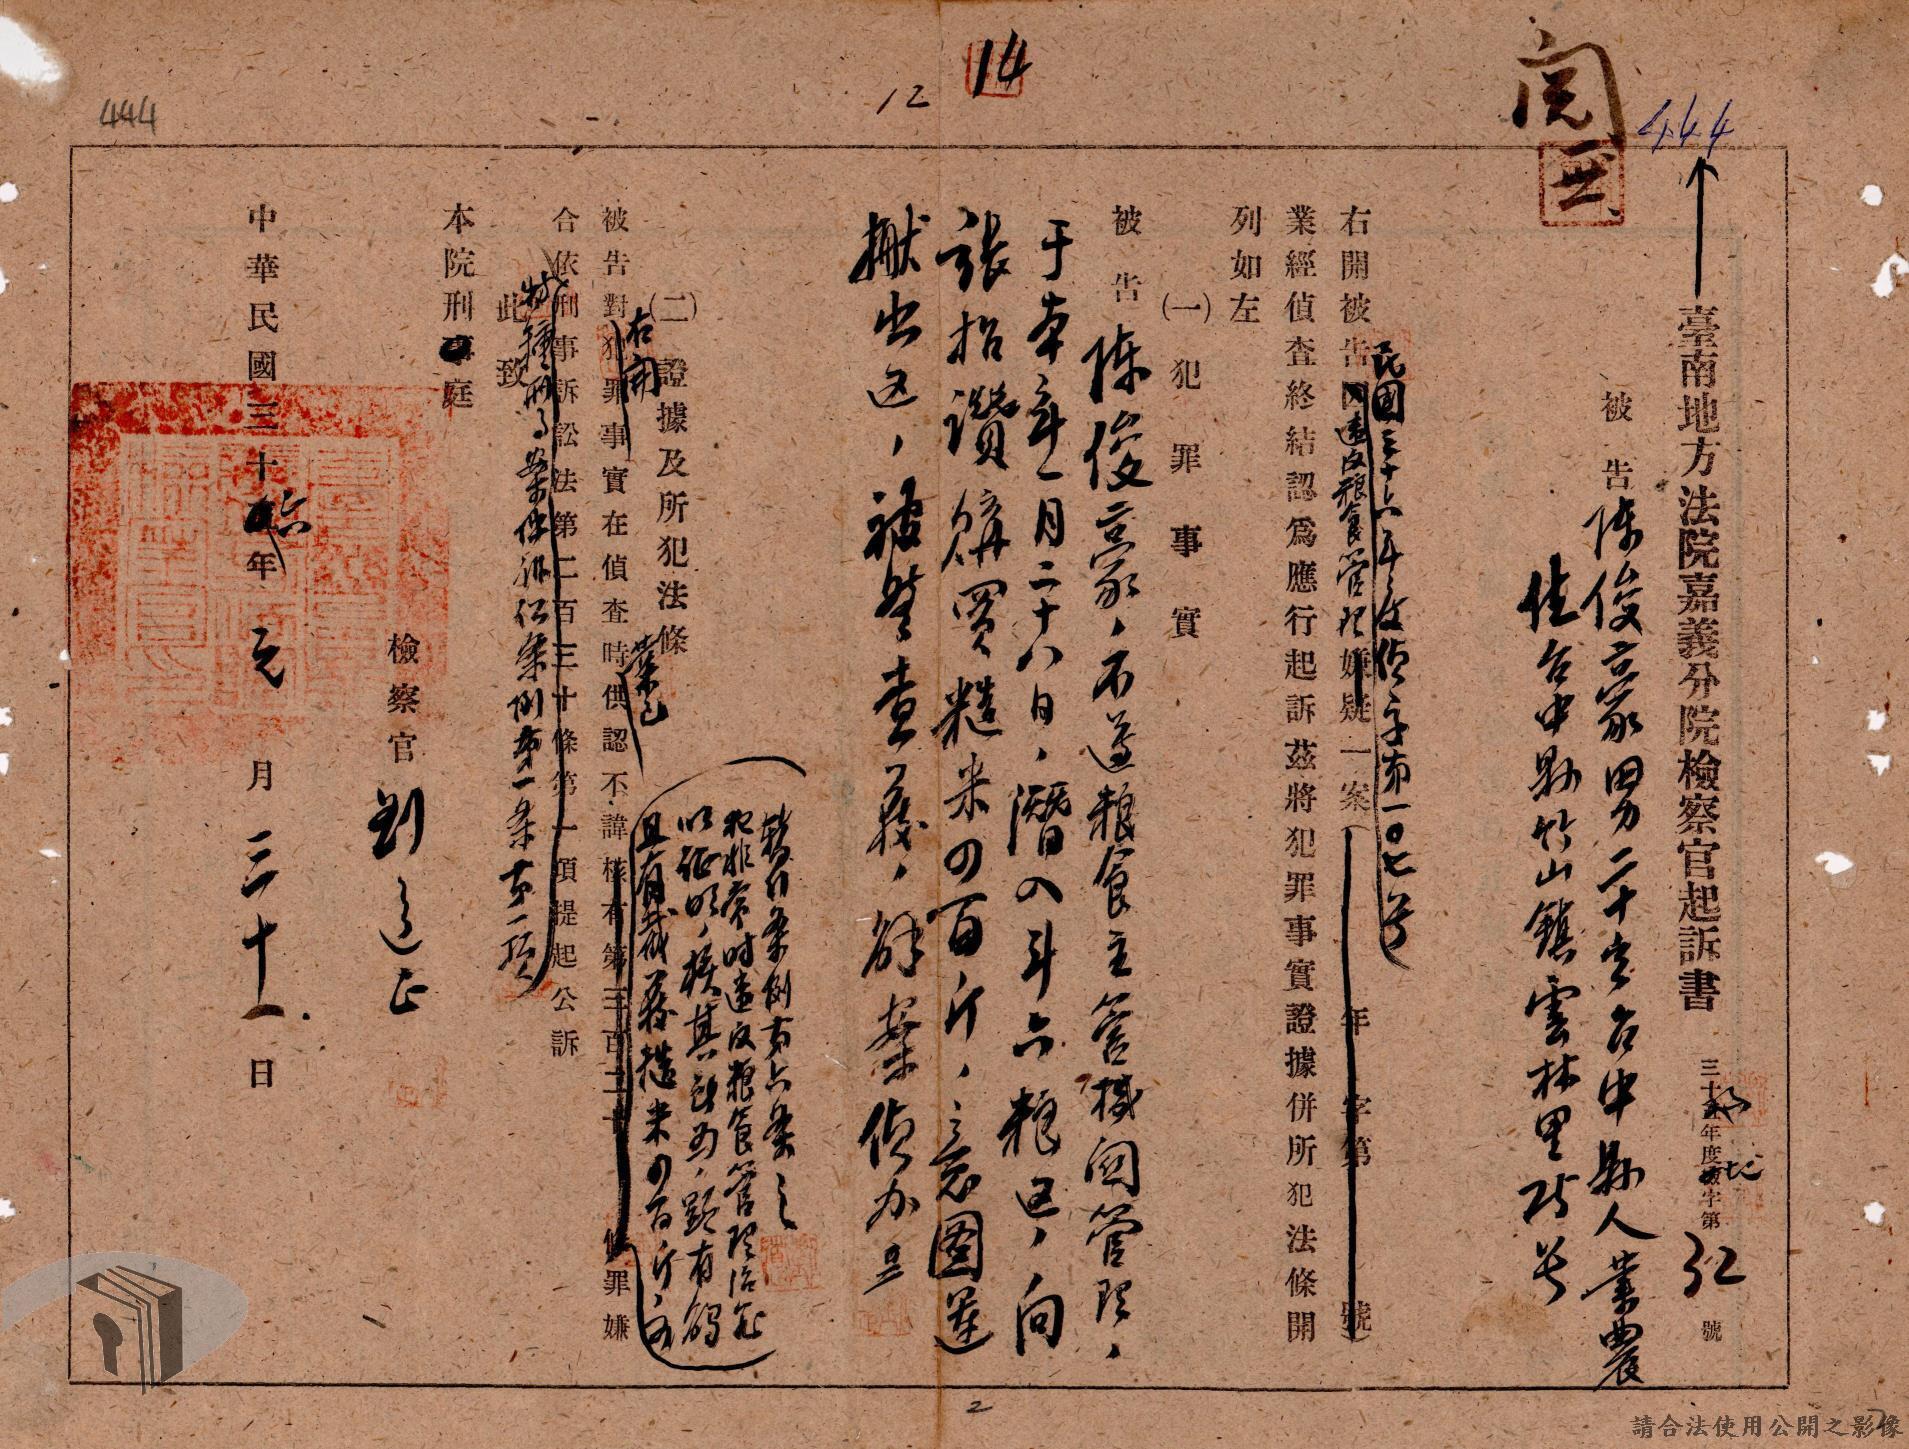 444
12
14
閱
444
臺南地方法院嘉義分院檢察官起訴書
三十六年度起字第32號
被告 陳俊豪 男二十 台中縣人業農
住台中縣竹山鎮雲林里 號
右開被告因違反粮食管理嫌疑一案(年字第號)
民國三十六年度偵字第一〇七號
業經偵查終結認爲應行起訴茲將犯罪事實證據併所犯法條開
列如左
(一)犯罪事實
被告陳俊豪,不遵粮食主管機関管理,
于本年一月二十八日,潛入斗六粮區,向
張招讚購買糙米四百斤,意圖運
搬出區,被警查獲,解案偵办
(二)證據及所犯法條
右開
業已
被告對犯罪事實在偵查時供認不諱核有第三百二十條罪嫌
且有截獲糙米四百斤,
以証明,核其所為,顯有觸
犯非常時違反粮食管理治罪
暫行条例第六条之
合依刑事訴訟法第二百三十條第一項提起公訴
特種刑事案件訴訟条例第一条第一項
此致
本院刑庭
檢察官 劉 正
中華民國三十六年元月三十一日
2
請合法使用公開之影像